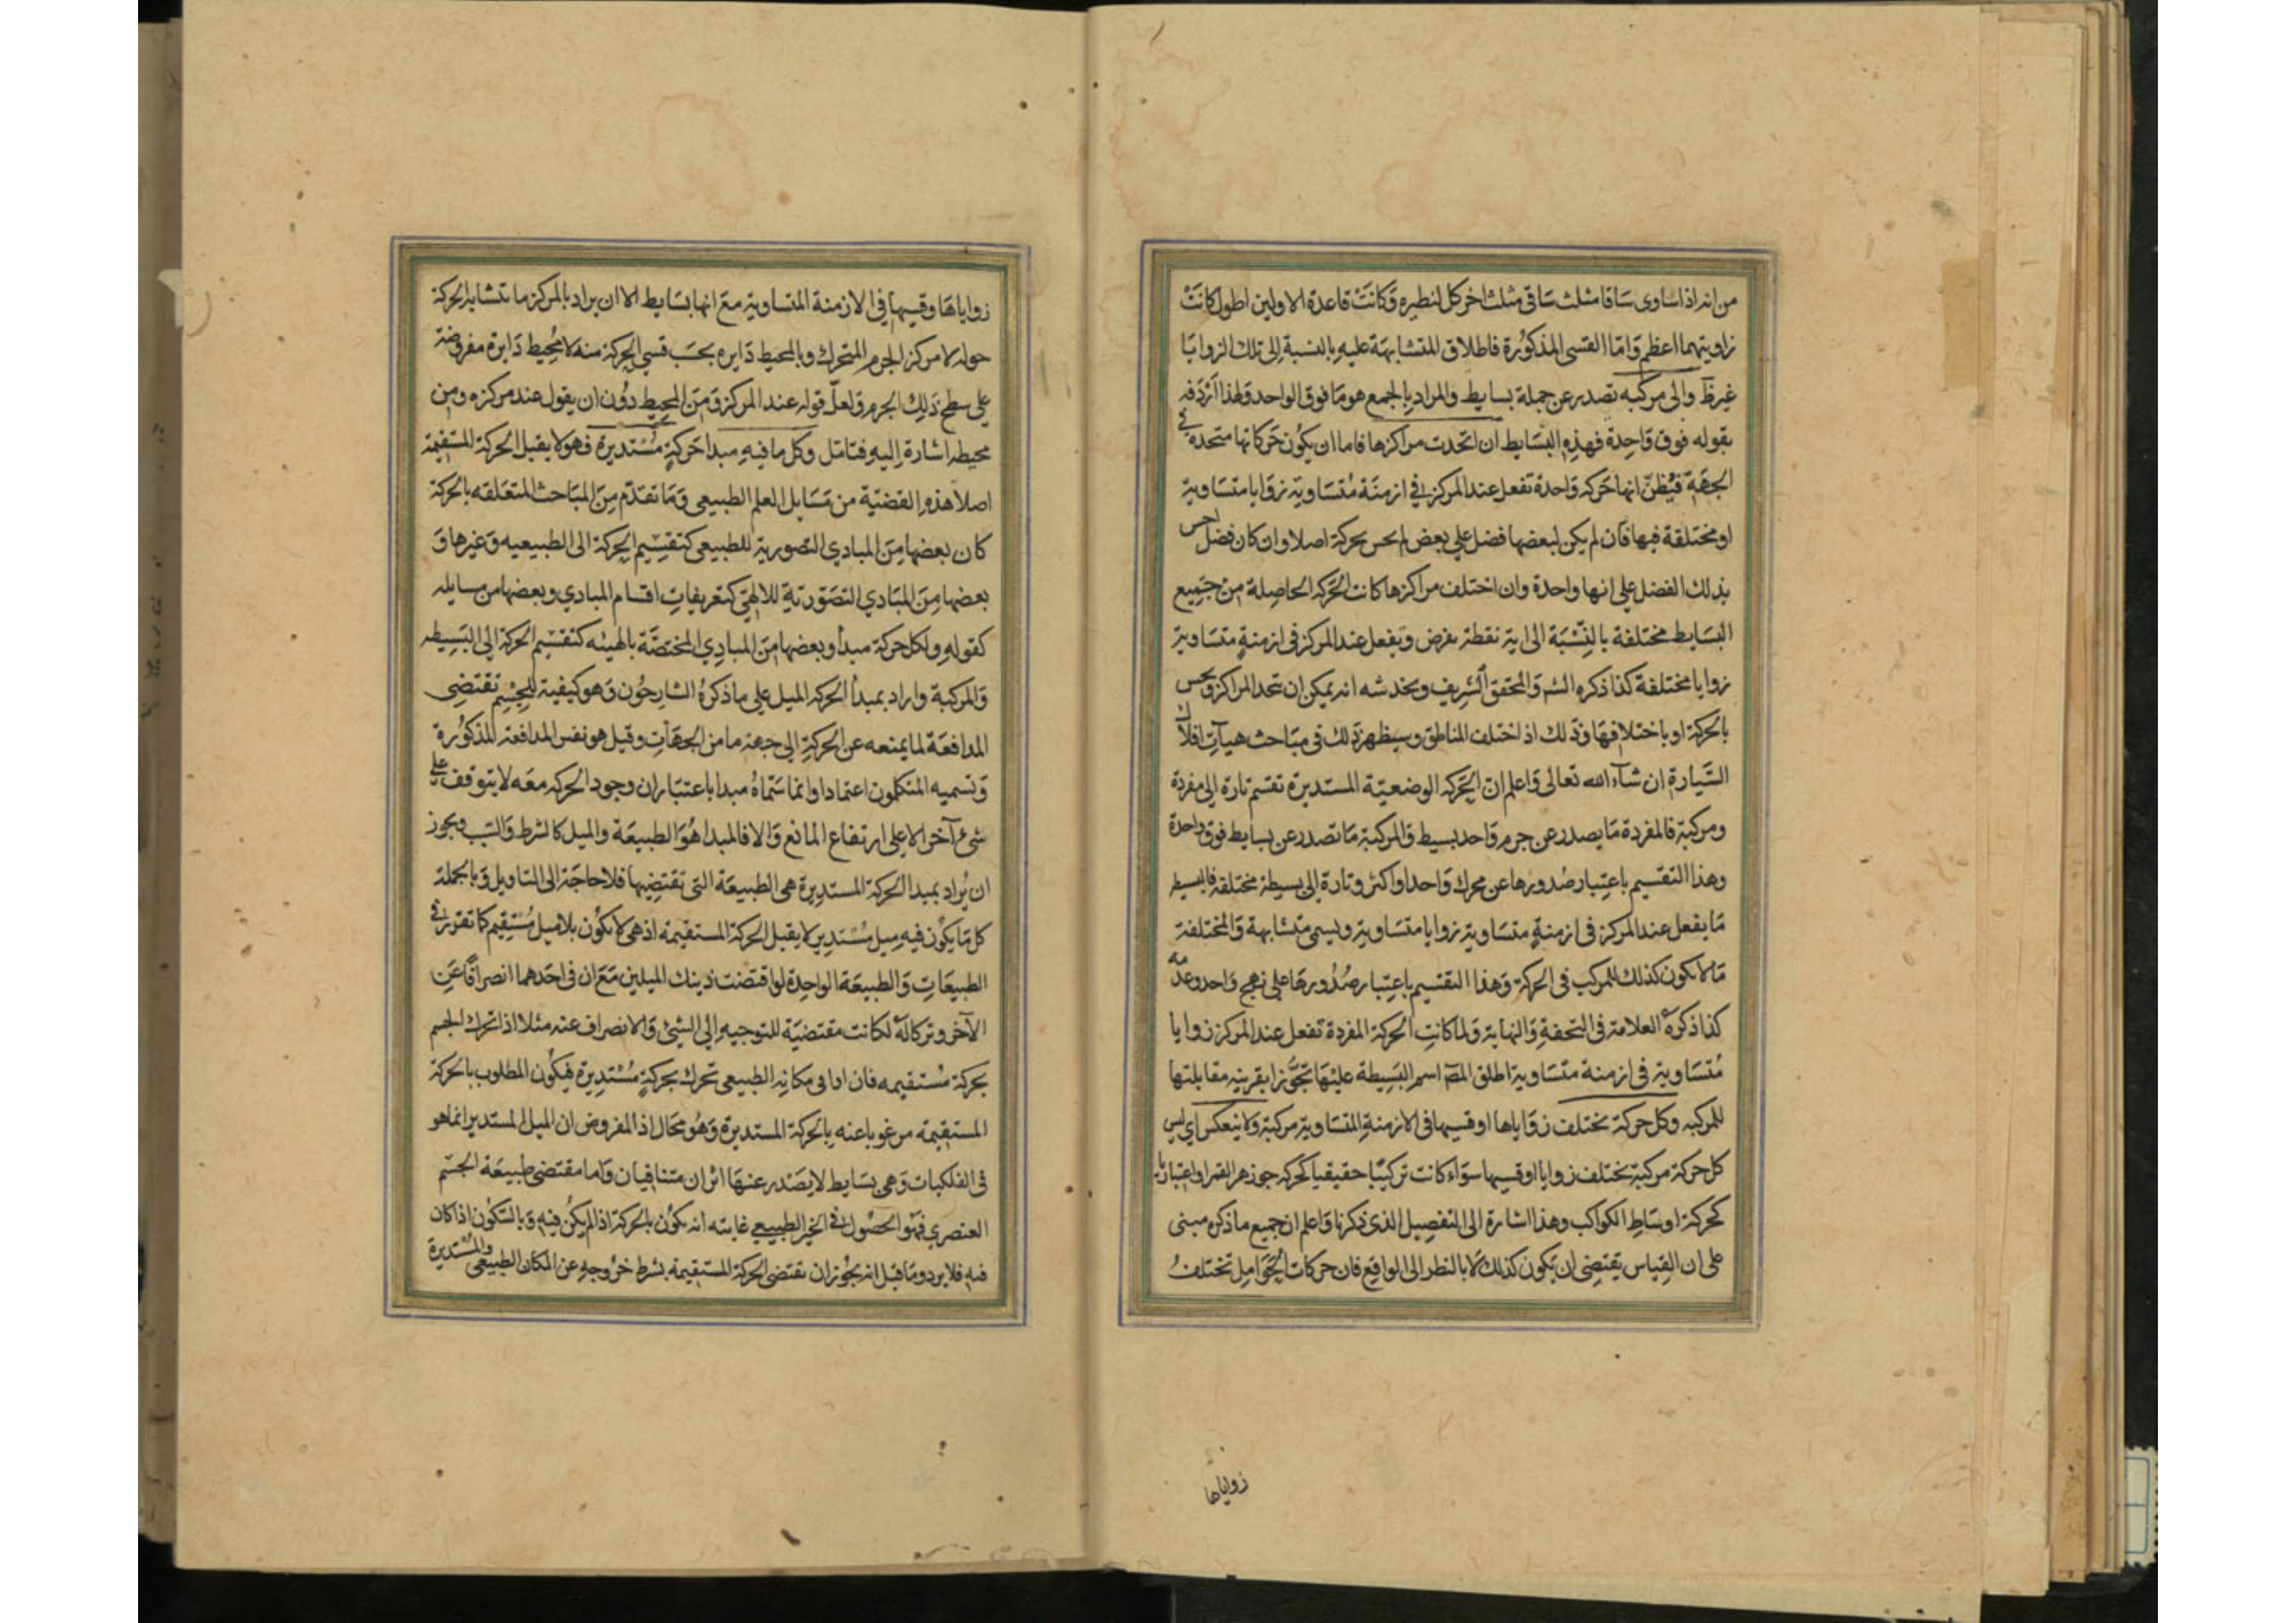 من انه اذا ساوى ساقا مثلث ساقى مثلث اخر كل لنظيره وكانت قاعدة الاولين اطول كانت
زاويتهما اعظم واما القسى المذكورة فاطلاق المتشابهة عليه بالنسبة الى تلك الزوايا
والى مركبه تصدر عن جملة بسايط والمراد بالجمع هو ما فوق الواحد ولهذا اردفه
بقوله فوق واحدة فهذه البسايط ان اتحدت مراكزها فاما ان يكون حركاتها متحدة فى
الجهة فيظن انها حركه واحدة تفعل عند المركز فى ازمنة متساوية زوايا متساوية
او مختلفة فيها فان لم يكن لبعضها فضل على بعض لم يحس بحركة اصلا وان كان فضل احس
بذلك الفضل على انها واحدة وان اختلف مراكزها كانت الحركه الحاصلة من جميع
البسايط مختلفة بالنسبة الى اية نقطة تفرض ويفعل عند المركز فى ازمنة متساوية
زوايا مختلفة كذا ذكره الشـ والمحقق الشريف ويخدشه انه يمكن ان تتحد المراكز ويحس
بالحركة او باختلافها وذلك اذ اختلف المناطق وسيظهر ذلك فى مباحث هيآت افلاك
السيارة ان شآء الله تعالى واعلم ان الحركه الوضعية المستديرة تقسم تارة الى مفردة
ومركبة فالمفردة ما يصدر عن جرم واحد بسيط والمركبة ما تصدر عن بسايط فوق واحدة
وهذا التقسيم باعتبار صدورها عن محرك واحد او اكثر وتارة الى بسيطة مختلفة فالبسيطه
ما يفعل عند المركز فى ازمنة متساوية زوايا متساوية ويسمى متشابهة والمختلفة
ما لا يكون كذلك للمركب فى الحركة وهذا التقسيم باعتبار صدورها على نهج واحد وعدمه
كذا ذكره العلامة فى التحفة والنهاية ولما كانت الحركة المفردة تفعل عند المركز زوايا
متساوية فى ازمنة متساوية اطلق المصـ اسم البسيطة عليها تجوزا بقرينه مقابلتها
للمركبه وكل حركة تختلف زواياها او قسيها فى الازمنة المتساوية مركبة ولا ينعكس اى ليس
كل حركة مركبة تختلف زوايا او قسيها سواء كانت تركيبا حقيقيا كحركه جوزهر القمر او اعتباريا
كحركة اوساط الكواكب وهذا اشارة الى التفصيل الذى ذكرنا واعلم ان جميع ما ذكره مبنى
على ان القياس يقتضى ان يكون كذلك لا بالنظر الى الواقع فان حركات الحوامل تختلف
زواياها
زواياها وقسيها فى الازمنة المتساوية مع انها بسايط الا ان يراد بالمركز ما تتشابه الحركة
حوله لا مركز الجرم المتحرك وبالمحيط دايره بحسب قسى الحركة منه لا محيط دايرة مفروضة
على سطح ذلك الجرم ولعل قوله عند المركز ومن المحيط دون ان يقول عند مركزه ومن
محيطه اشارة اليه فتامل وكل ما فيه مبدا حركة مستديرة فهو لا يقبل الحركة المستقيمة
اصلا هذه القضية من مسايل العلم الطبيعى وما تقدم من المباحث المتعلقه بالحركة
كان بعضها من المبادي التصورية للطبيعى كتقسيم الحركة الى الطبيعيه وغيرها و
بعضها من المبادي التصورية للالهى كتعريفات اقسام المبادي وبعضها من مسايله
كقوله ولكل حركة مبدأ وبعضها من المبادي المختصة بالهيئه كتقسيم الحركة الى البسيطه
والمركبة واراد بمبدأ الحركه الميل على ما ذكره الشارحون وهو كيفية للجسم تقتضي
المدافعة لما يمنعه عن الحركة الى جهة ما من الجهات وقيل هو نفس المدافعة المذكورة
وتسميه المتكلمون اعتمادا وانما سماه مبدا باعتبار ان وجود الحركه معه لا يتوقف على
شئ آخر الا على ارتفاع المانع والا فالمبدا هو الطبيعة والميل كالشرط والسبب ويجوز
ان يراد بمبدا الحركة المستديرة هى الطبيعة التى تقتضيها فلا حاجة الى التاويل وبالجملة
كل ما يكون فيه ميل مستدير لا يقبل الحركة المستقيمة اذ هى لا يكون بلا ميل مستقيم كما تقرر فى
الطبيعات والطبيعة الواحدة لو اقتضت ذينك الميلين مع ان فى احدهما انصرافا عن
الآخر وتركا له لكانت مقتضية للتوجيه الى الشئ والانصراف عنه مثلا اذا تحرك الجسم
بحركة مستقيمه فان اداى مكانه الطبيعى تحرك بحركة مستديرة فيكون المطلوب بالحركة
المستقيمة مرغوبا عنه بالحركة المستديرة وهو محال اذ المفروض ان الميل المستدير انما هو
فى الفلكيات وهى بسايط لا يصدر عنها اثران متنافيان واما مقتضى طبيعة الجسم
العنصري فهو الحصول فى الحيز الطبيعى غايته انه يكون بالحركة اذا لم يكن فيه وبالسكون اذا كان
فيه فلا يرد وما قيل انه يجوز ان تقتضى الحركة المستقيمة بشرط خروجه عن المكان الطبيعى والمستديرة